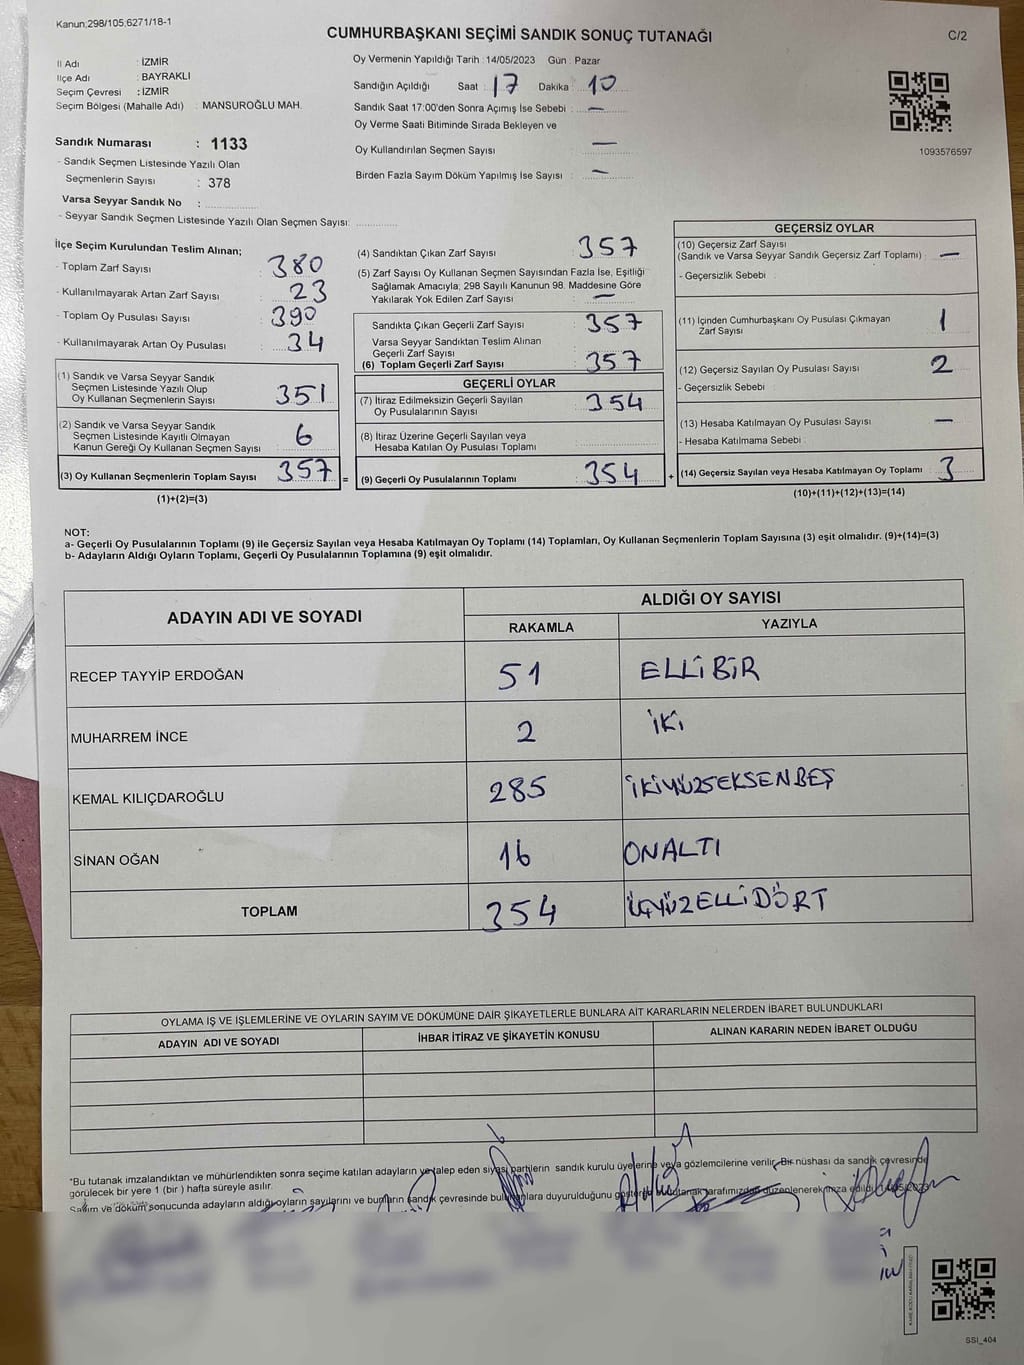 Kanun,298/105,6271/18-1
CUMHURBAŞKANI SEÇİMİ SANDIK SONUÇ TUTANAĞI
C/2
İl Adı : İZMİR
İlçe Adı : BAYRAKLI
Seçim Çevresi : İZMİR
Seçim Bölgesi (Mahalle Adı) : MANSUROĞLU MAH.
Sandık Numarası : 1133
- Sandık Seçmen Listesinde Yazılı Olan
Seçmenlerin Sayısı : 378
Varsa Seyyar Sandık No :
- Seyyar Sandık Seçmen Listesinde Yazılı Olan Seçmen Sayısı:
Oy Vermenin Yapıldığı Tarih : 14/05/2023 Gün : Pazar
Sandığın Açıldığı Saat : 17 Dakika : 10
Sandık Saat 17:00'den Sonra Açımış İse Sebebi : —
Oy Verme Saati Bitiminde Sırada Bekleyen ve
Oy Kullandırılan Seçmen Sayısı : —
Birden Fazla Sayım Döküm Yapılmış İse Sayısı : —
1093576597
İlçe Seçim Kurulundan Teslim Alınan;
- Toplam Zarf Sayısı : 380
- Kullanılmayarak Artan Zarf Sayısı : 23
- Toplam Oy Pusulası Sayısı : 390
- Kullanılmayarak Artan Oy Pusulası : 34
(1) Sandık ve Varsa Seyyar Sandık
Seçmen Listesinde Yazılı Olup
Oy Kullanan Seçmenlerin Sayısı : 351
(2) Sandık ve Varsa Seyyar Sandık
Seçmen Listesinde Kayıtlı Olmayan
Kanun Gereği Oy Kullanan Seçmen Sayısı : 6
(3) Oy Kullanan Seçmenlerin Toplam Sayısı : 357 =
(1)+(2)=(3)
(4) Sandıktan Çıkan Zarf Sayısı : 357
(5) Zarf Sayısı Oy Kullanan Seçmen Sayısından Fazla İse, Eşitliği
Sağlamak Amacıyla; 298 Sayılı Kanunun 98. Maddesine Göre
Yakılarak Yok Edilen Zarf Sayısı : —
Sandıkta Çıkan Geçerli Zarf Sayısı : 357
Varsa Seyyar Sandıktan Teslim Alınan
Geçerli Zarf Sayısı :
(6) Toplam Geçerli Zarf Sayısı : 357
GEÇERLİ OYLAR
(7) İtiraz Edilmeksizin Geçerli Sayılan
Oy Pusulalarının Sayısı : 354
(8) İtiraz Üzerine Geçerli Sayılan veya
Hesaba Katılan Oy Pusulası Toplamı :
(9) Geçerli Oy Pusulalarının Toplamı : 354 +
GEÇERSİZ OYLAR
(10) Geçersiz Zarf Sayısı
(Sandık ve Varsa Seyyar Sandık Geçersiz Zarf Toplamı) : —
- Geçersizlik Sebebi :
(11) İçinden Cumhurbaşkanı Oy Pusulası Çıkmayan
Zarf Sayısı : 1
(12) Geçersiz Sayılan Oy Pusulası Sayısı : 2
- Geçersizlik Sebebi :
(13) Hesaba Katılmayan Oy Pusulası : —
- Hesaba Katılmama Sebebi :
(14) Geçersiz Sayılan veya Hesaba Katılmayan Oy Toplamı : 3
(10)+(11)+(12)+(13)=(14)
NOT:
a- Geçerli Oy Pusulalarının Toplamı (9) ile Geçersiz Sayılan veya Hesaba Katılmayan Oy Toplamı (14) Toplamları, Oy Kullanan Seçmenlerin Toplam Sayısına (3) eşit olmalıdır. (9)+(14)=(3)
b- Adayların Aldığı Oyların Toplamı, Geçerli Oy Pusulalarının Toplamına (9) eşit olmalıdır.
ADAYIN ADI VE SOYADI
ALDIĞI OY SAYISI
RAKAMLA YAZIYLA
RECEP TAYYİP ERDOĞAN 51 ELLİBİR
MUHARREM İNCE 2 İKİ
KEMAL KILIÇDAROĞLU 285 İKİYÜZSEKSENBEŞ
SİNAN OĞAN 16 ONALTI
TOPLAM 354 ÜÇYÜZELLİDÖRT
OYLAMA İŞ VE İŞLEMLERİNE VE OYLARIN SAYIM VE DÖKÜMÜNE DAİR ŞİKAYETLERLE BUNLARA AİT KARARLARIN NELERDEN İBARET BULUNDUKLARI
ADAYIN ADI VE SOYADI İHBAR İTİRAZ VE ŞİKAYETİN KONUSU ALINAN KARARIN NEDEN İBARET OLDUĞU
"Bu tutanak imzalandıktan ve mühürlendikten sonra seçime katılan adayların ve talep eden siyasi partilerin sandık kurulu üyelerine veya gözlemcilerine verilir. Bir nüshası da sandık çevresinde
görülecek bir yere 1 (bir ) hafta süreyle asılır.
Sayım ve döküm sonucunda adayların aldığı oyların sayılarını ve bunların sandık çevresinde bulunanlara duyurulduğunu gösterir bu tutanak tarafımızdan düzenlenerek imza edildi. 14/05/2023
SSI_404